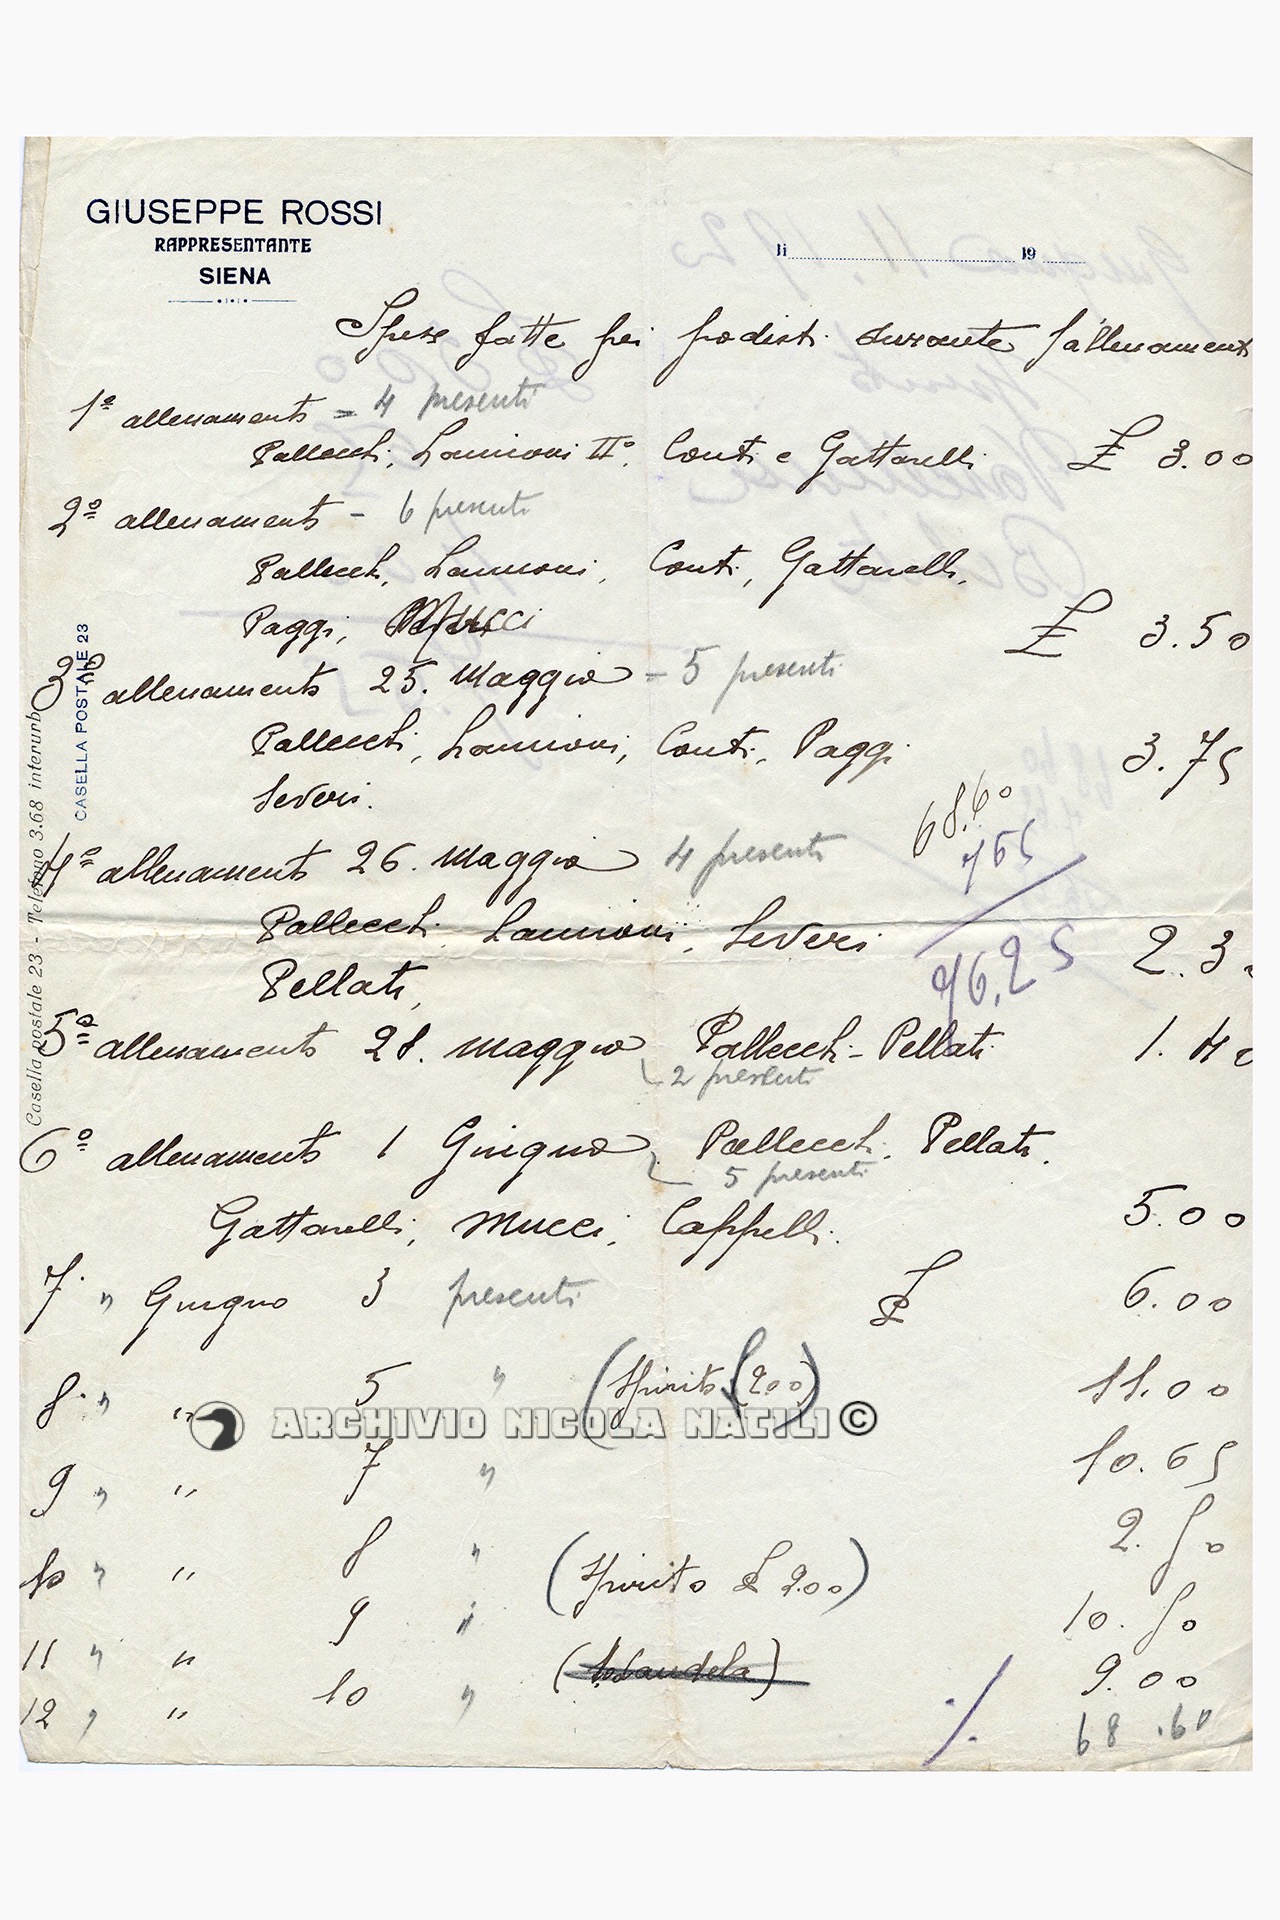 GIUSEPPE ROSSI
RAPPRESENTANTE
SIENA
li 19
Spese fatte pei podisti durante l'allenament
1º allenamento = 4 presenti
Pallecchi, Lannoni IIº, Conti e Gattarelli £ 3.00
2º allenamento - 6 presenti
Pallecchi, Lannoni, Conti, Gattarelli,
Paggi, Mucci £ 3.50
3º allenamento 25. Maggio = 5 presenti
Pallecchi, Lannoni, Conti, Paggi 3.75
Severi.
68.60
4º allenamento 26. Maggio 4 presenti
Pallecchi, Lannoni, Severi 2.3
Pellati,
76.25
5º allenamento 28. Maggio Pallecchi - Pellati 1.40
2 presenti
6º allenamento 1 Giugno Pallecchi, Pellati,
5 presenti
Gattarelli, Mucci, Cappelli. 5.00
7. " Giugno 3 presenti £ 6.00
8. " " 5 " (Spirito (2.00) 11.00
9 " " 7 " 10.65
10 " " 8 " (Spirito £ 2.00) 2.50
11 " " 9 " 10.50
12 " " 10 " 9.00
68.60
CASELLA POSTALE 23
Casella postale 23 - Telefono 3.68 interurb
ARCHIVIO NICOLA NATILI ©